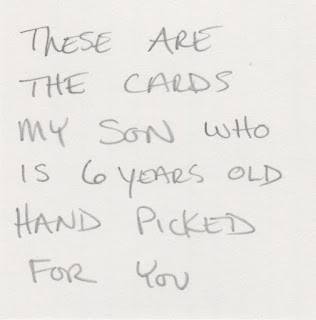 THESE ARE
THE CARDS
MY SON WHO
IS 6 YEARS OLD
HAND PICKED
FOR YOU